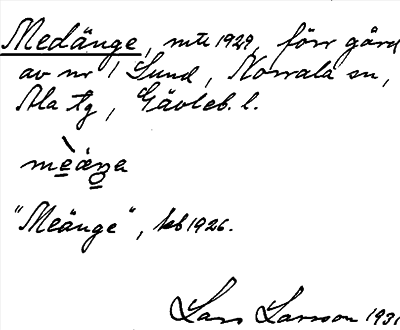 Medänge, mtl 1929, förr gård
av nr 1 Sund, Norrala sn,
Ala tg, Gävleb. l.
"Meänge", kb 1926.
Lars Larsson 1931